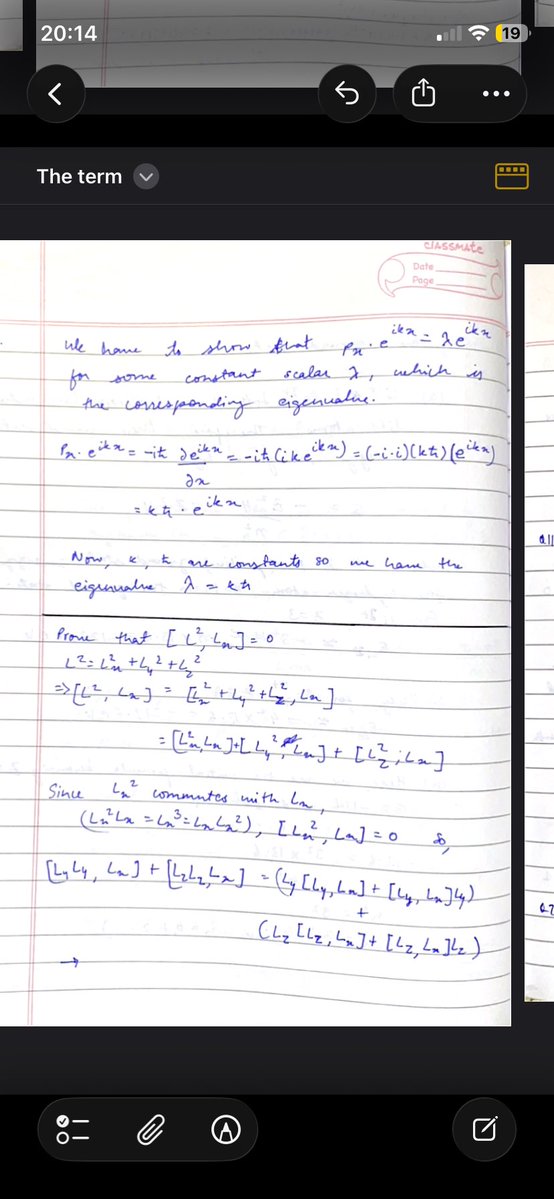 20:14
19
The term
classmate
Date
Page
We have to show that Pₓ·e^{ikx} = λe^{ikx}
for some constant scalar λ, which is
the corresponding eigenvalue.
Pₓ·e^{ikx} = -iħ ∂e^{ikx}/∂x = -iħ(ike^{ikx}) = (-i·i)(kħ)(e^{ikx})
= kħ·e^{ikx}
Now, k, ħ are constants so we have the
eigenvalue λ = kħ
Prove that [L², Lₓ] = 0
L² = Lₓ² + L_y² + L_z²
⇒ [L², Lₓ] = [Lₓ² + L_y² + L_z², Lₓ]
= [Lₓ², Lₓ] + [L_y², Lₓ] + [L_z², Lₓ]
Since Lₓ² commutes with Lₓ,
(Lₓ²Lₓ = Lₓ³ = LₓLₓ²), [Lₓ², Lₓ] = 0 So,
[L_yL_y, Lₓ] + [L_zL_z, Lₓ] = (L_y[L_y, Lₓ] + [L_y, Lₓ]L_y)
+
(L_z[L_z, Lₓ] + [L_z, Lₓ]L_z)
→
Q.11